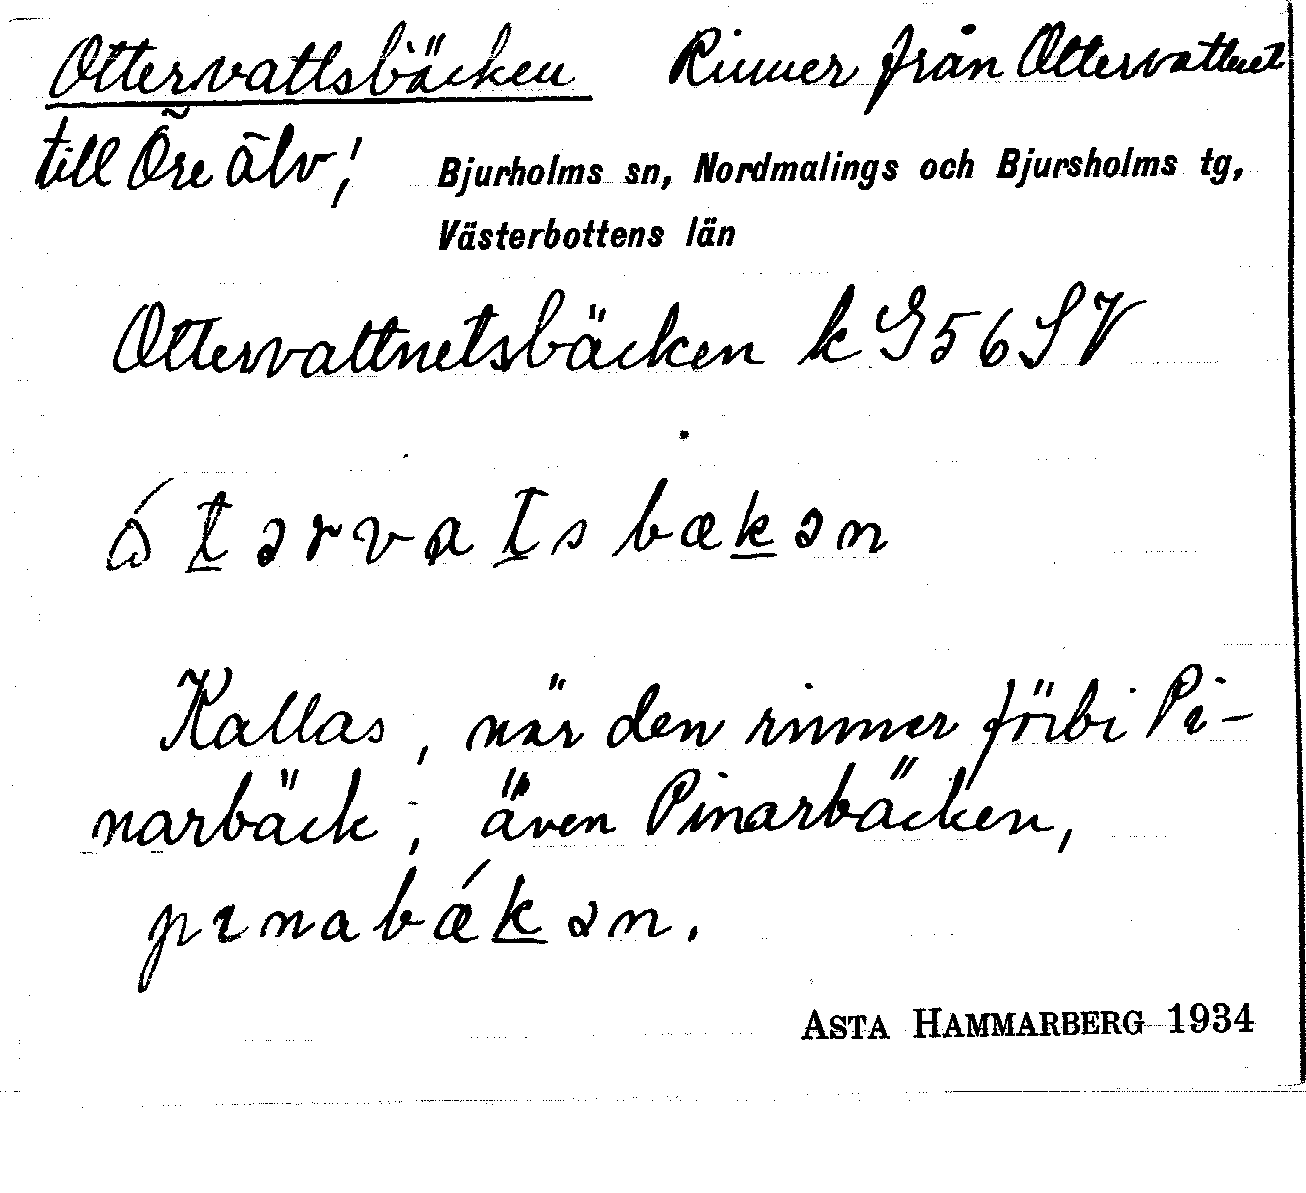 Ottervattsbäcken Rinner från Ottervattnet
till Öre älv;
Bjurholms sn, Nordmalings och Bjursholms tg,
Västerbottens län
Ottervattnetsbäcken k G56SV
ót̲ərvat̲sbæk̲ən
Kallas, när den rinner förbi Pi-
narbäck, även Pinarbäcken,
pınabǽk̲ən.
ASTA HAMMARBERG 1934